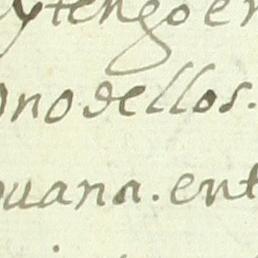 y tengo en
no dellos.
uana. ent